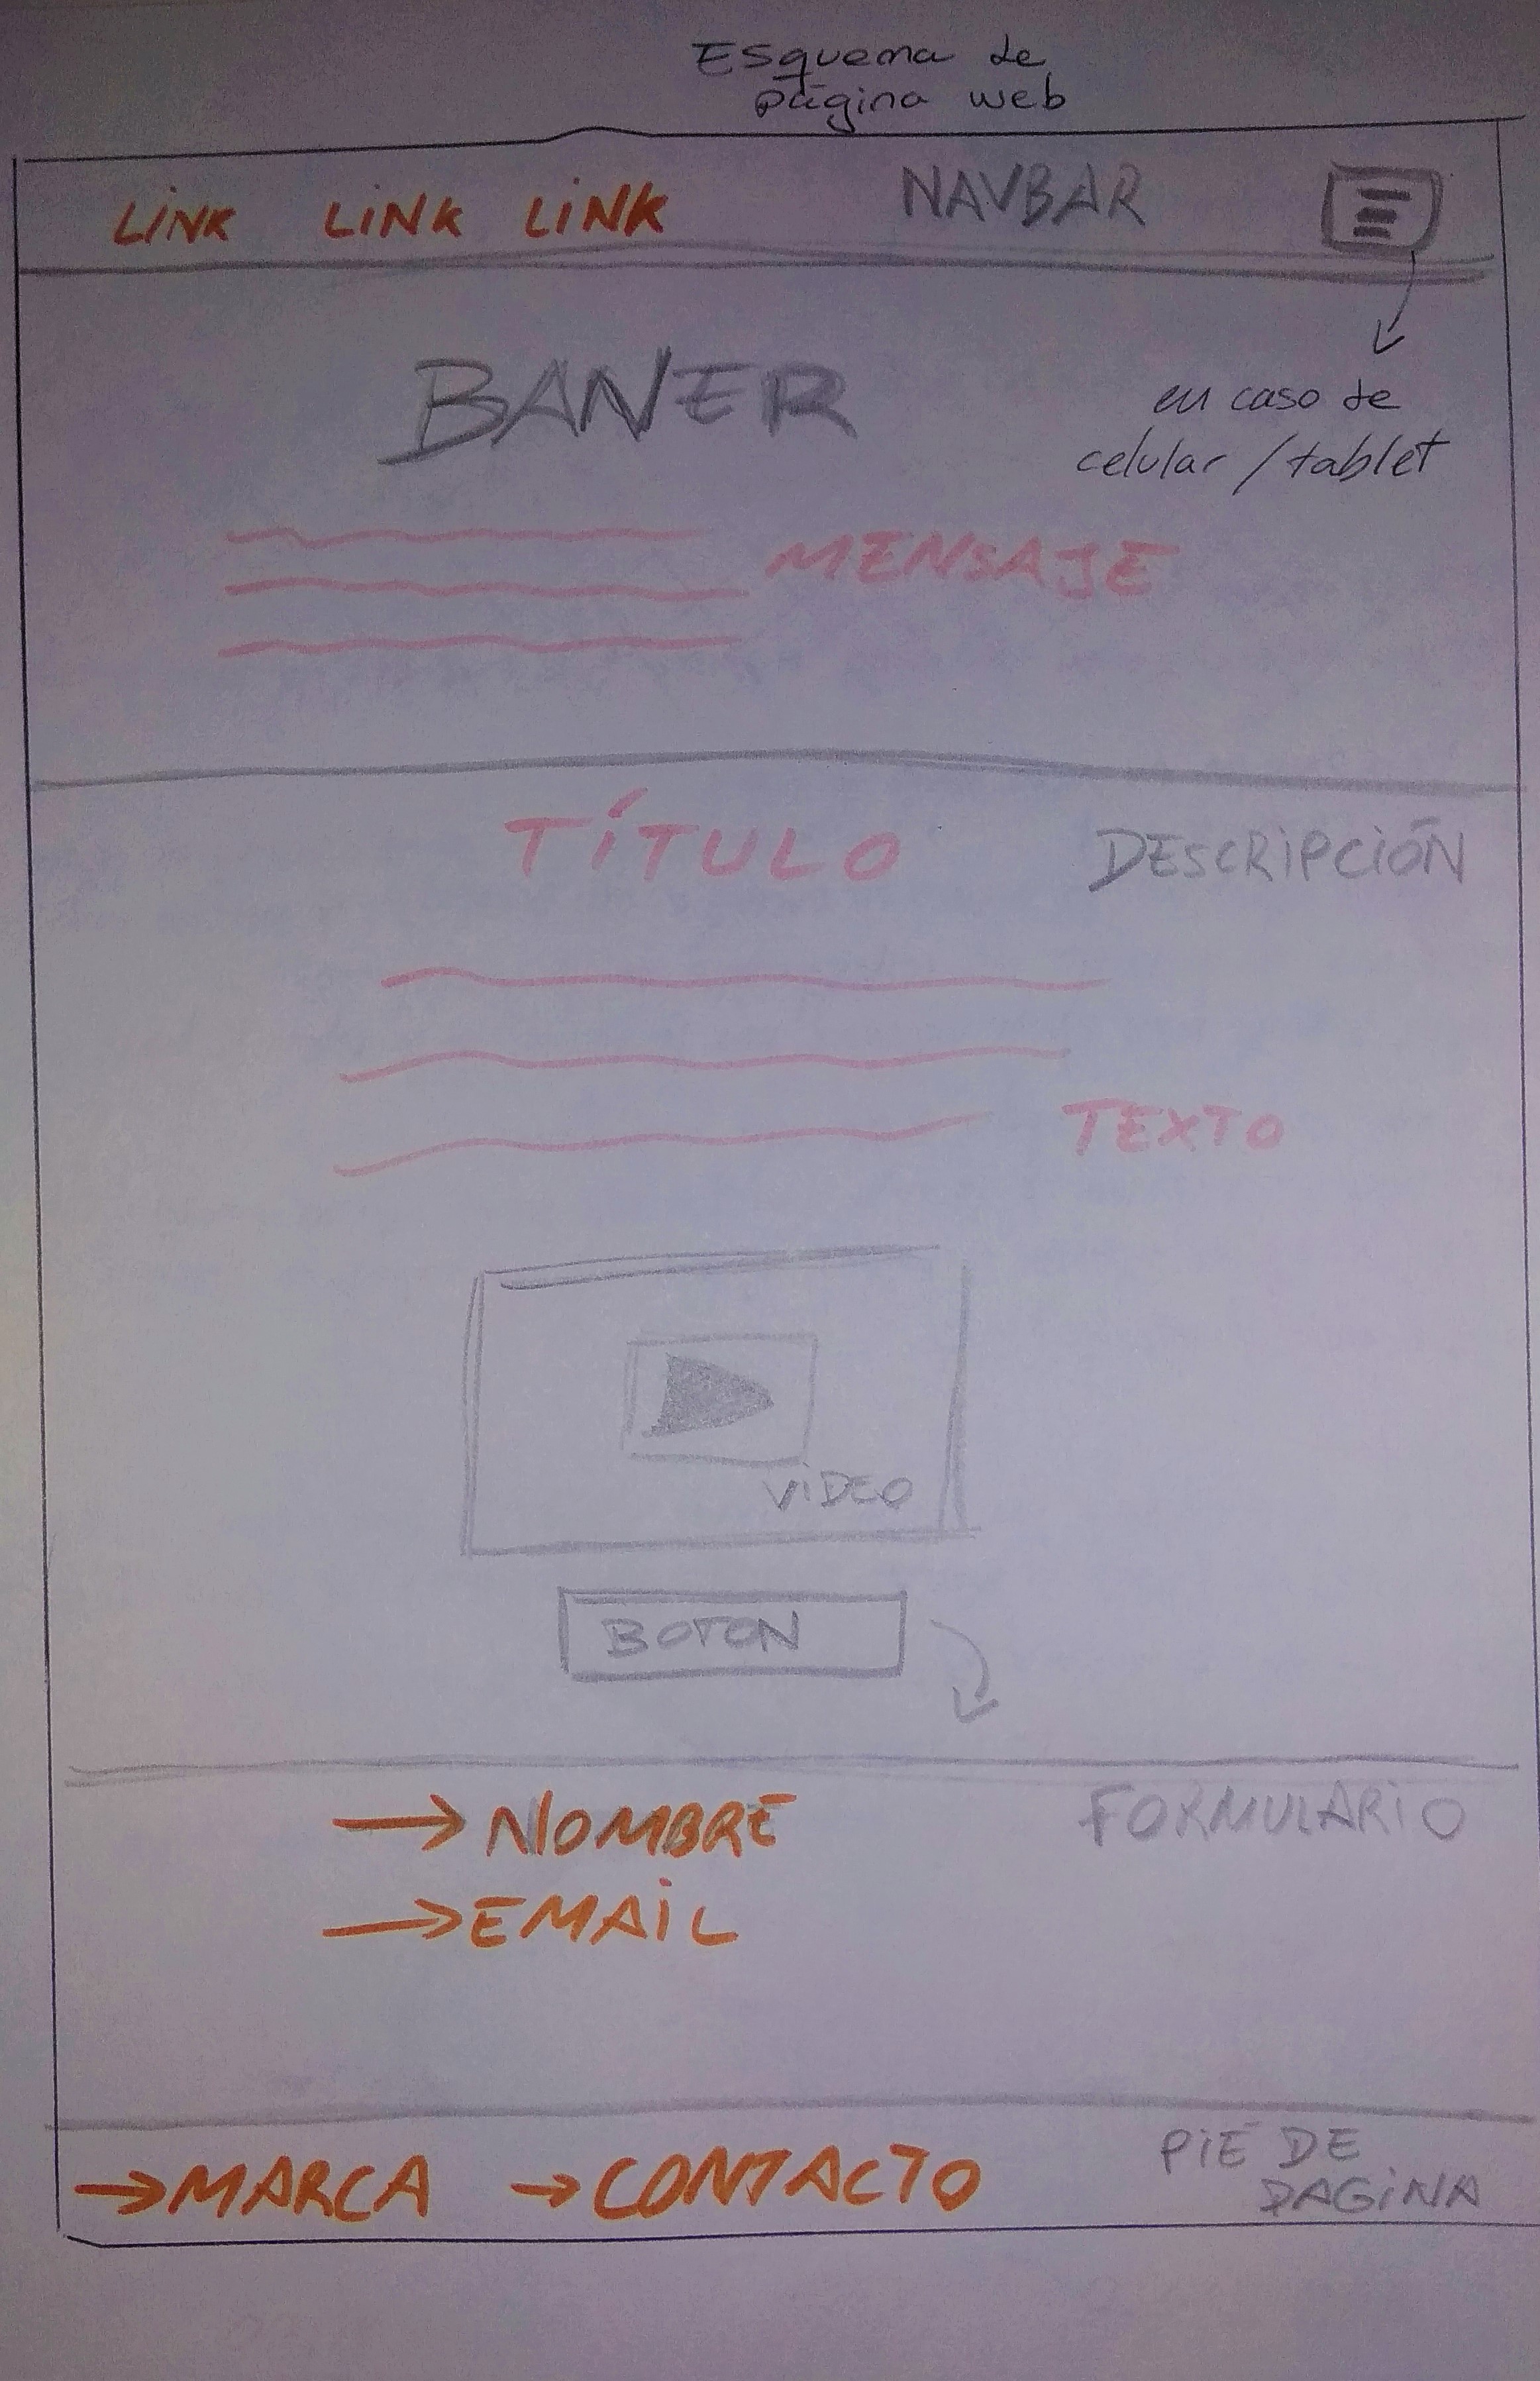 Esquema de
página web
LiNK LiNK LiNK NAVBAR
BANER
en caso de
celular / tablet
MENSAJE
TÍTULO DESCRiPCiÓN
TEXTO
ViDEO
BOTON
NOMBRE FORMULARiO
EMAiL
MARCA CONTACTO PiE DE
PAGiNA